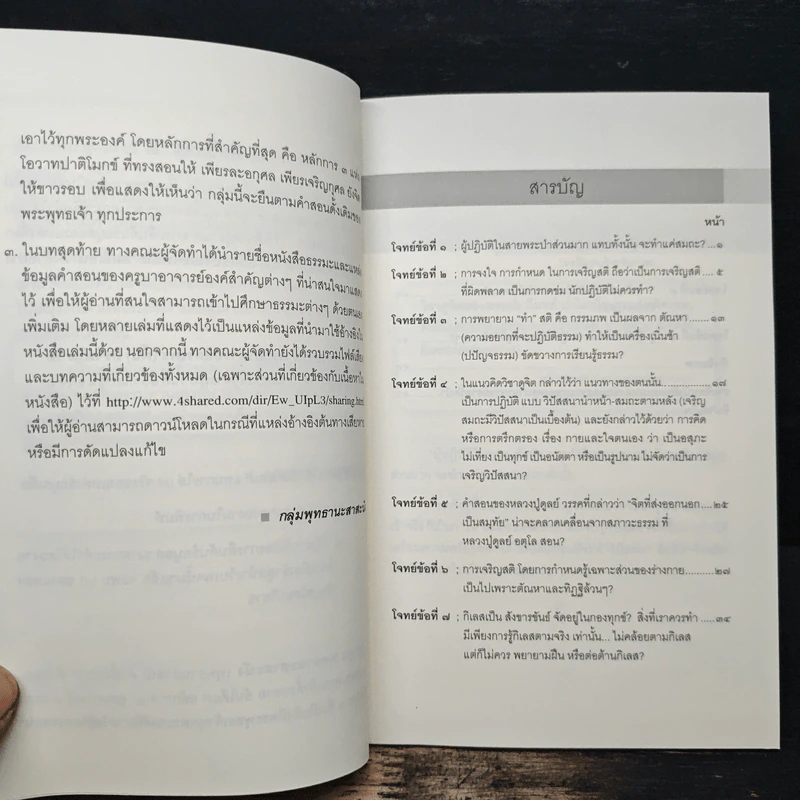 เอาไว้ทุกพระองค์ โดยหลักการที่สำคัญที่สุด คือ หลักการ ๓ แห่ง
โอวาทปาติโมกข์ ที่ทรงสอนให้ เพียรละอกุศล เพียรเจริญกุศล ยังจิต
ให้ขาวรอบ เพื่อแสดงให้เห็นว่า กลุ่มนี้จะยืนตามคำสอนดั้งเดิมของ
พระพุทธเจ้า ทุกประการ
๓. ในบทสุดท้าย ทางคณะผู้จัดทำได้นำรายชื่อหนังสือธรรมะและแหล่ง
ข้อมูลคำสอนของครูบาอาจารย์องค์สำคัญต่างๆ ที่น่าสนใจมาแสดง
ไว้ เพื่อให้ผู้อ่านที่สนใจสามารถเข้าไปศึกษาธรรมะต่างๆ ด้วยตนเอง
เพิ่มเติม โดยหลายเล่มที่แสดงไว้เป็นแหล่งข้อมูลที่นำมาใช้อ้างอิงใน
หนังสือเล่มนี้ด้วย นอกจากนี้ ทางคณะผู้จัดทำยังได้รวบรวมไฟล์เสียง
และบทความที่เกี่ยวข้องทั้งหมด (เฉพาะส่วนที่เกี่ยวข้องกับเนื้อหาใน
หนังสือ) ไว้ที่ http://www.4shared.com/dir/Ew_UIpL3/sharing.html
เพื่อให้ผู้อ่านสามารถดาวน์โหลดในกรณีที่แหล่งอ้างอิงต้นทางเสียหาย
หรือมีการดัดแปลงแก้ไข
■ กลุ่มพุทธานะสาสะนัง
สารบัญ
หน้า
โจทย์ข้อที่ ๑ ; ผู้ปฏิบัติในสายพระป่าส่วนมาก แทบทั้งนั้น จะทำแค่สมถะ? ...๑
โจทย์ข้อที่ ๒ ; การจงใจ การกำหนด ในการเจริญสติ ถือว่าเป็นการเจริญสติ .....๕
ที่ผิดพลาด เป็นการกดข่ม นักปฏิบัติไม่ควรทำ?
โจทย์ข้อที่ ๓ ; การพยายาม “ทำ” สติ คือ กรรมภพ เป็นผลจาก ตัณหา .......๑๓
(ความอยากที่จะปฏิบัติธรรม) ทำให้เป็นเครื่องเนิ่นช้า
(ปปัญจธรรม) ขัดขวางการเรียนรู้ธรรม?
โจทย์ข้อที่ ๔ ; ในแนวคิดวิชาดูจิต กล่าวไว้ว่า แนวทางของตนนั้น................๑๗
เป็นการปฏิบัติ แบบ วิปัสสนานำหน้า-สมถะตามหลัง (เจริญ
สมถะมีวิปัสสนาเป็นเบื้องต้น) และยังกล่าวไว้ด้วยว่า การคิด
หรือการตรึกตรอง เรื่อง กายและใจตนเอง ว่า เป็นอสุภะ
ไม่เที่ยง เป็นทุกข์ เป็นอนัตตา หรือเป็นรูปนาม ไม่จัดว่าเป็นการ
เจริญวิปัสสนา?
โจทย์ข้อที่ ๕ ; คำสอนของหลวงปู่ดูลย์ วรรคที่กล่าวว่า “จิตที่ส่งออกนอก...๒๕
เป็นสมุทัย” น่าจะคลาดเคลื่อนจากสภาวะธรรม ที่
หลวงปู่ดูลย์ อตุโล สอน?
โจทย์ข้อที่ ๖ ; การเจริญสติ โดยการกำหนดรู้เฉพาะส่วนของร่างกาย........๒๗
เป็นไปเพราะตัณหาและทิฏฐิล้วนๆ?
โจทย์ข้อที่ ๗ ; กิเลสเป็น สังขารขันธ์ จัดอยู่ในกองทุกข์? สิ่งที่เราควรทำ .....๓๔
มีเพียงการรู้กิเลสตามจริง เท่านั้น... ไม่คล้อยตามกิเลส
แต่ก็ไม่ควร พยายามฝืน หรือต่อต้านกิเลส?